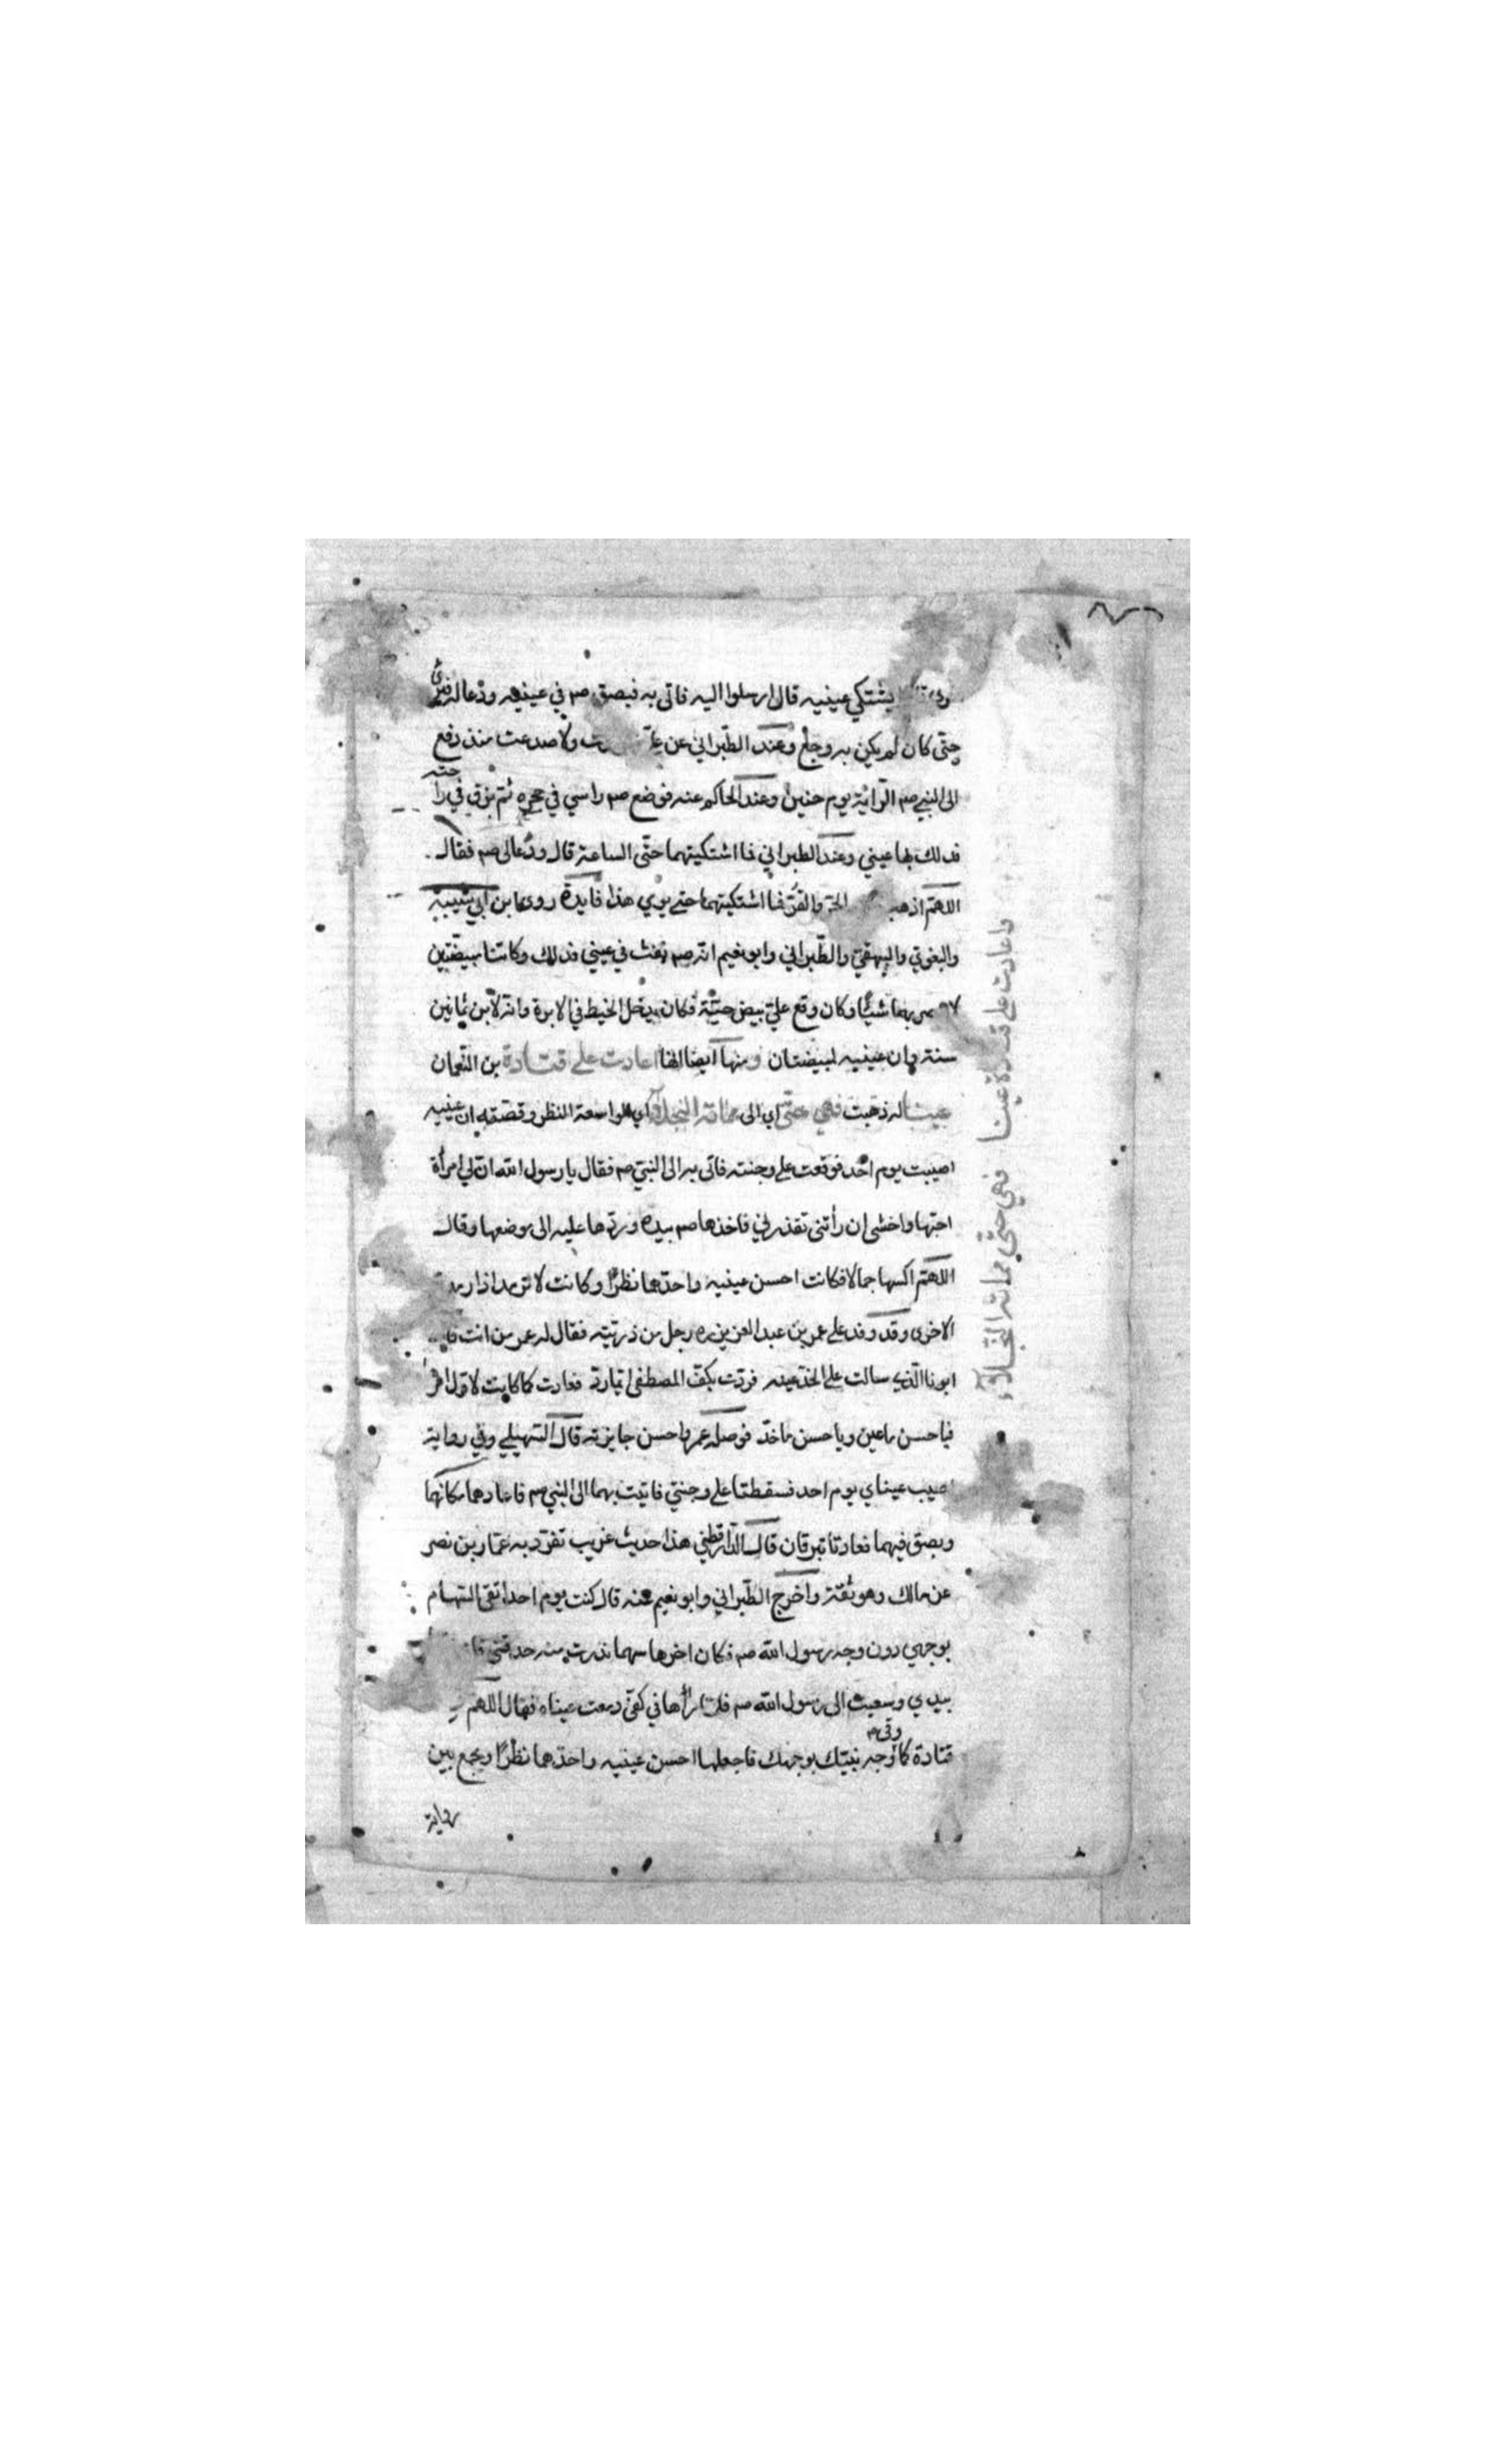 يشتكي عينيه قال ارسلوا اليه فاتى به فبصق صم في عينيه ودعا له فبرئ
حتّى كان لم يكن به وجع وعند الطبراني عن ولا صدعت منذ دفع
الى النبي صم الرّاية يوم حنين وعند الحاكم عنه فوضع صم راسي في حجره ثم بزق في راحته
فدلك بها عيني وعند الطبراني فما اشتكيتهما حتّى الساعة قال ودعا لى صم فقال
اللهمّ اذهب الحرّ والقرّ فما اشتكيتهما حتى يومي هذا فايدة روى ابن ابي شيبة
والبغوي والبيهقي والطّبراني وابو نعيم انّه صم نفث في عيني فدلك وكانتا مبيضّتين
بهما شيئًا وكان وقع على بيض حيّة فكان يدخل الخيط في الابرة وانّه لابن ثمانين
سنة وان عينيه لمبيضتان ومنها ايضا انها اعادت على قتادة بن النّعمان
عينا له ذهبت فهي حتّى اي الى مماته النجلاء اي الواسعة النظر وقصّته ان عينيه
اصيبت يوم احُد فوقعت على وجنته فاتى به الى النبيّ صم فقال يا رسول الله ان لي امرأة
احبّها واخشى ان رأتنى تقذرني فاخذها صم بيده وردّها عليه الى موضعها وقال
اللهمّ اكسها جمالا فكانت احسن عينيه واحدّهما نظرًا وكانت لا ترمد اذا رمدت
الاخرى وقد وفد على عمر بن عبد العزيز ره رجل من ذريّته فقال له عمر من انت
ابونا الّذي سالت على الخدّ عينه فردّت بكفّ المصطفى ايّما ردّ فعادت كما كانت لاول
فيا حسن ما عين ويا حسن ما خدّ فوصله عمر واحسن جايزته قال السّهيلي وفي رواية
اصيب عيناي يوم احد فسقطتا على وجنتي فاتيت بهما الى النبي صم فاعادهما مكانهما
وبصق فيهما فعادتا تبرقان قال الدّارقطني هذا حديث غريب تفرّد به عمّار بن نصر
عن مالك وهو ثقة واخرج الطّبراني وابو نعيم عنه قال كنت يوم احد اتقى السّهام
بوجهي دون وجه رسول الله صم فكان اخرها سهما ندرت منه حدقتي
بيدي وسعيت الى رسول الله صم فلمّا رأها في كفّي دمعت عيناه فقال اللهمّ
قتادة كما وقى وجه نبيّك بوجهك فاجعلها احسن عينيه واحدّهما نظرًا ويجمع بين
رواية
واعادت على قتادة عينا فهي حتّى مماته النّجلاء